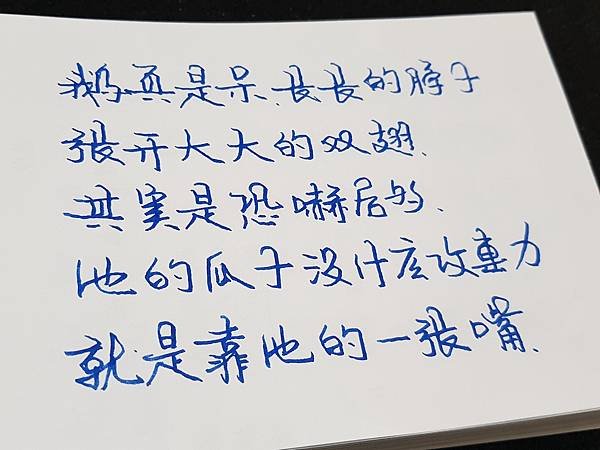 鹅真是呆、長長的脖子
張开大大的双翅、
其实是恐嚇居多、
他的瓜子没什么攻擊力
就是靠他的一張嘴、